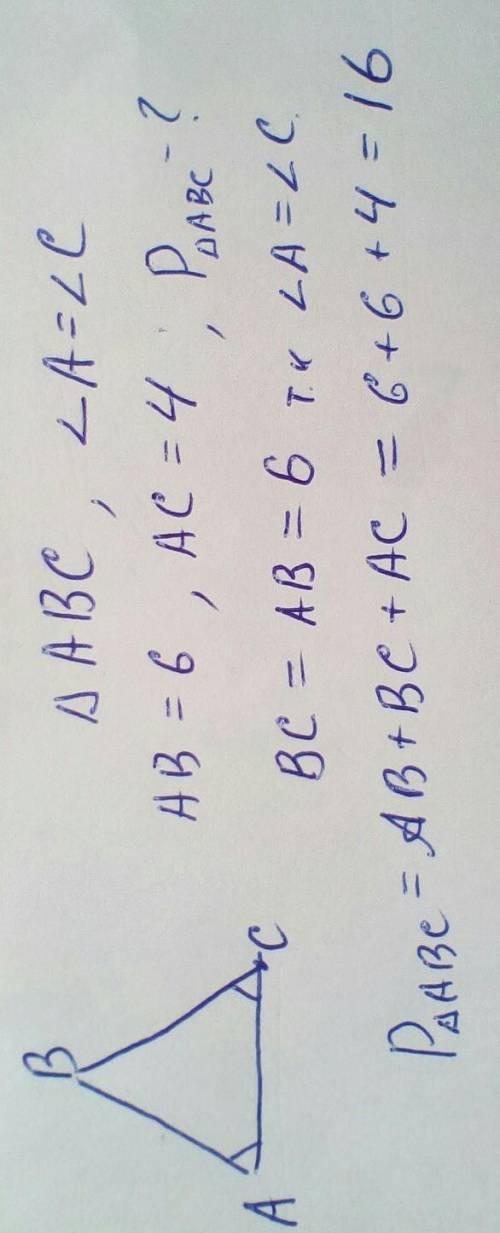 B
A
C
Δ ABC, ∠A=∠C
AB = 6, AC = 4, PΔABC - ?
BC = AB = 6 т.к ∠A=∠C.
PΔABC = AB+BC+AC = 6+6+4=16